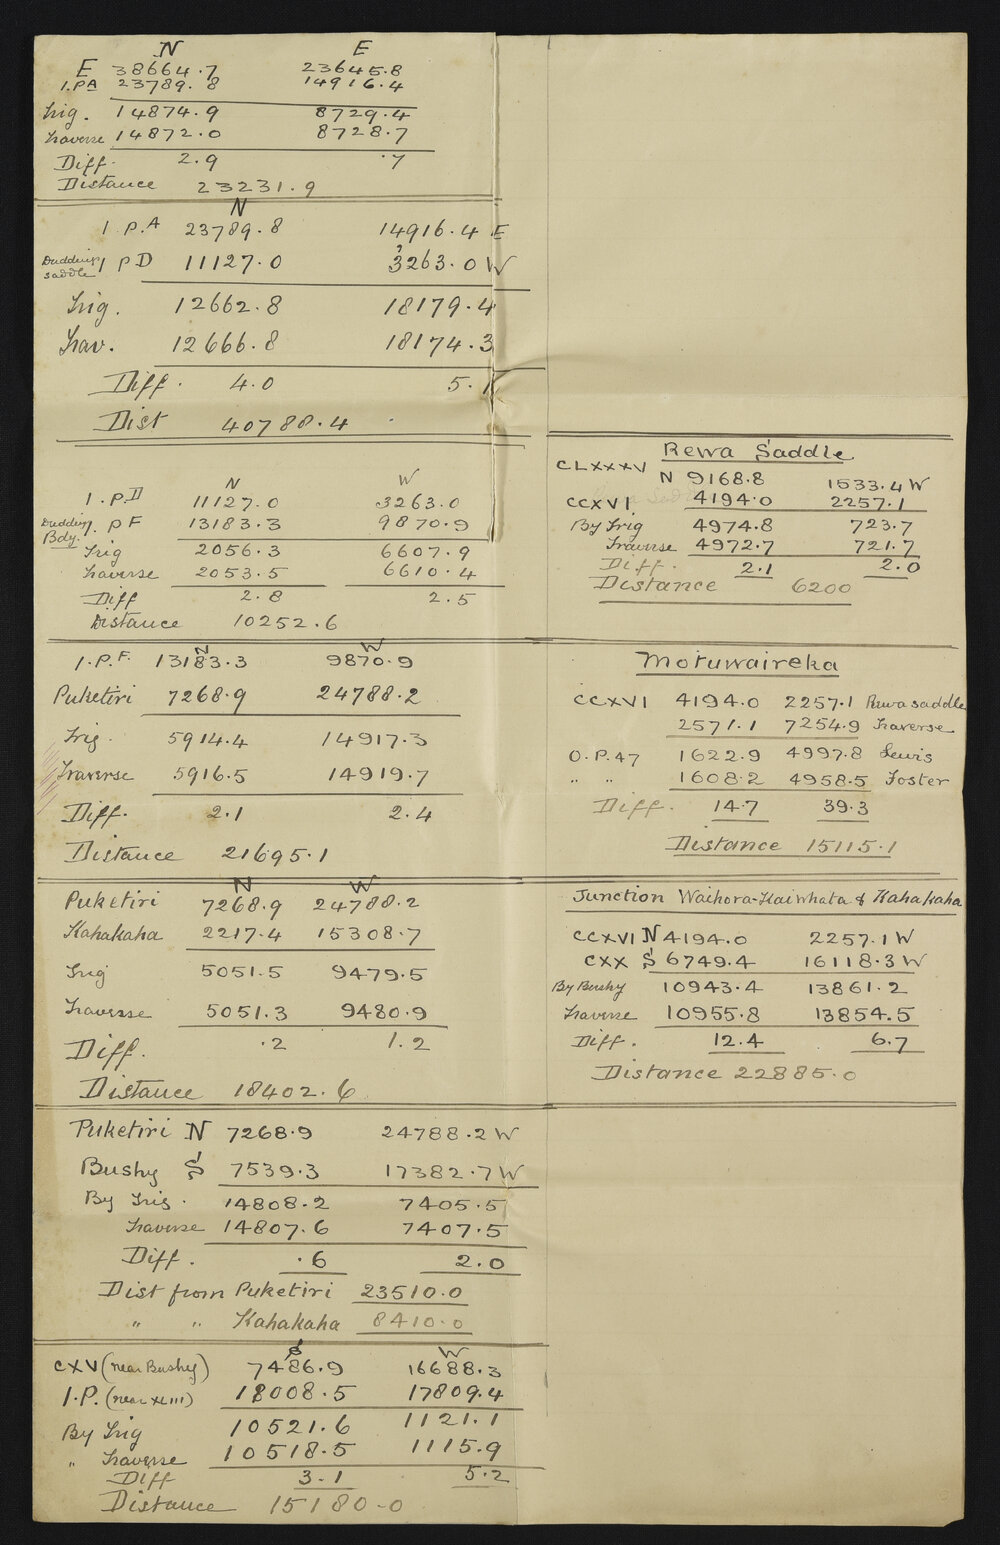 N E
E 38664.7 23645.8
I.PA 23789.8 14916.4
Trig. 14874.9 8729.4
Traverse 14872.0 8728.7
Diff. 2.9 .7
Distance 23231.9
N
I.P.A 23789.8 14916.4 E
Dudding saddle I P D 11127.0 3263.0 W
Trig. 12662.8 18179.4
Trav. 12666.8 18174.3
Diff. 4.0 5.1
Dist 40788.4
N W
I.P.D 11127.0 3263.0
Dudding Bdy. I. P F 13183.3 9870.9
Trig 2056.3 6607.9
Traverse 2053.5 6610.4
Diff 2.8 2.5
Distance 10252.6
N W
I.P.F. 13183.3 9870.9
Puketiri 7268.9 24788.2
Trig. 5914.4 14917.3
Traverse 5916.5 14919.7
Diff. 2.1 2.4
Distance 21695.1
N W
Puketiri 7268.9 24788.2
Kahakaha 2217.4 15308.7
Trig 5051.5 9479.5
Traverse 5051.3 9480.9
Diff. .2 1.2
Distance 18402.6
Puketiri N 7268.9 24788.2 W
Bushy S 7539.3 17382.7 W
By Trig. 14808.2 7405.5
Traverse 14807.6 7407.5
Diff. .6 2.0
Dist from Puketiri 23510.0
" " Kahakaha 8410.0
S W
CXV (near Bushy) 7486.9 16688.3
I.P. (near XLIII) 18008.5 17809.4
By Trig 10521.6 1121.1
" Traverse 10518.5 1115.9
Diff 3.1 5.2
Distance 15180.0
Rewa Saddle
CLXXXV N 9168.8 1533.4 W
CCXVI 4194.0 2257.1
By Trig 4974.8 723.7
Traverse 4972.7 721.7
Diff. 2.1 2.0
Distance 6200
Motuwaireka
CCXVI 4194.0 2257.1 Rewa saddle
2571.1 7254.9 Traverse
O.P.47 1622.9 4997.8 Lewis
" " 1608.2 4958.5 Foster
Diff. 14.7 39.3
Distance 15115.1
Junction Waihora-Kaiwhata & Kahakaha
CCXVI N 4194.0 2257.1 W
CXX S 6749.4 16118.3 W
By Bushy 10943.4 13861.2
Traverse 10955.8 13854.5
Diff. 12.4 6.7
Distance 22885.0